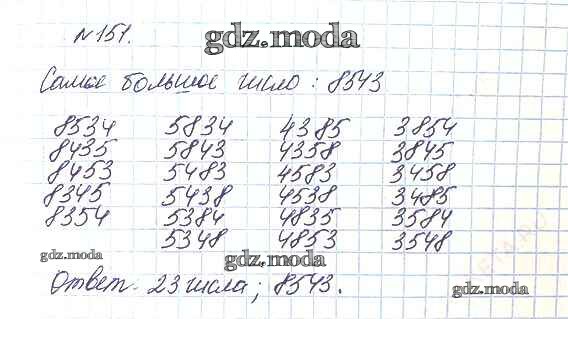 №151.
gdz.moda
Самое большое число : 8543
8534 5834 4385 3854
8435 5843 4358 3845
8453 5483 4583 3458
8345 5438 4538 3485
8354 5384 4835 3584
5348 4853 3548
gdz.moda
gdz.moda
Ответ. 23 числа; 8543.
gdz.moda